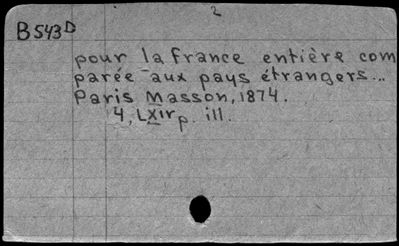 2
B543D
pour la France entière com
parée aux pays étrangers...
Paris Masson, 1874.
4, LXIV p. ill.